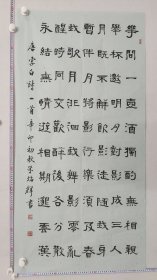 花間一壺酒獨酌無相親
舉杯邀明月對影成三人
月既不解飲影徒隨我身
暫伴月將影行樂須及春
我歌月徘徊我舞影零亂
醒時同交歡醉後各分散
永結無情遊相期邈雲漢
唐李白詩一首辛卯初秋書